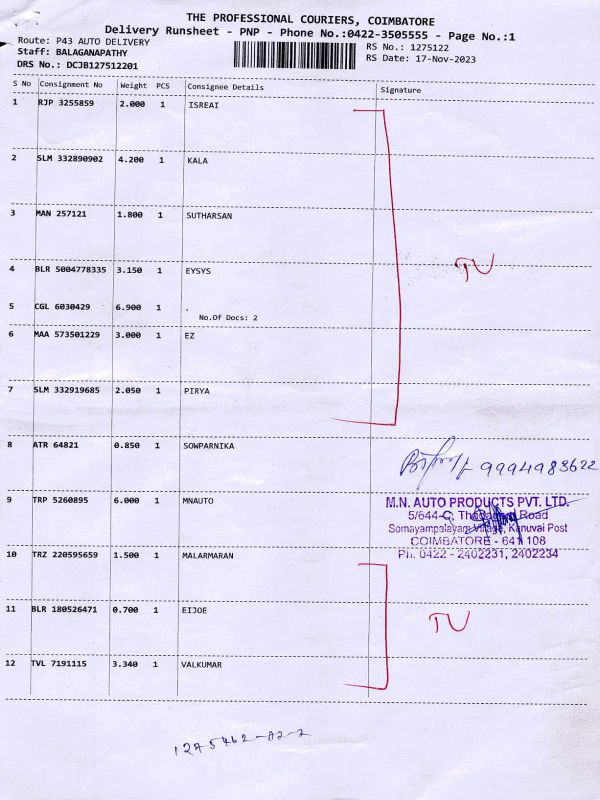 THE PROFESSIONAL COURIERS, COIMBATORE
Delivery Runsheet - PNP - Phone No.:0422-3505555 - Page No.:1
Route: P43 AUTO DELIVERY
RS No.: 1275122
Staff: BALAGANAPATHY
RS Date: 17-Nov-2023
DRS No.: DCJB127512201
S No Consignment No Weight PCS Consignee Details Signature
1 RJP 3255859 2.000 1 ISREAI
2 SLM 332890902 4.200 1 KALA
3 MAN 257121 1.800 1 SUTHARSAN
TV
4 BLR 5004778335 3.150 1 EYSYS
5 CGL 6030429 6.900 1 .
No.Of Docs: 2
6 MAA 573501229 3.000 1 EZ
7 SLM 332919685 2.050 1 PIRYA
8 ATR 64821 0.850 1 SOWPARNIKA
9994983622
9 TRP 5260895 6.000 1 MNAUTO
M.N. AUTO PRODUCTS PVT. LTD.
5/644-C, Road
Somayampalayam Village, Kanuvai Post
COIMBATORE - 641 108
Ph. 0422 - 2402231, 2402234
10 TRZ 220595659 1.500 1 MALARMARAN
11 BLR 180526471 0.700 1 EIJOE
TV
12 TVL 7191115 3.340 1 VALKUMAR